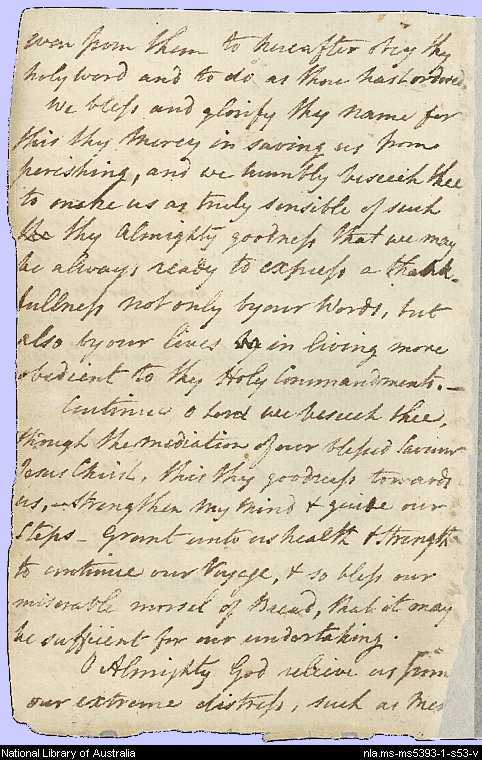 even from them to hereafter obey thy
holy word and to do as thou hast ordered.
We bless and glorify thy name for
this thy Mercy in saving us from
perishing, and we humbly beseech thee
to make us as truly sensible of such
thy Almighty goodness that we may
be always ready to express a thank-
fullness not only by our Words, but
also by our lives in living more
obedient to thy Holy Commandments. –
Continue O Lord we beseech thee,
through the mediation of our blessed Saviour
Jesus Christ, this thy goodness towards
us, – strengthen my mind & guide our
Steps – Grant unto us health & strength
to continue our Voyage, & so bless our
miserable morsel of Bread, that it may
be sufficient for our undertaking.
O Almighty God relieve us from
our extreme distress, such as Men
National Library of Australia
nla.ms-ms5393-1-s53-v